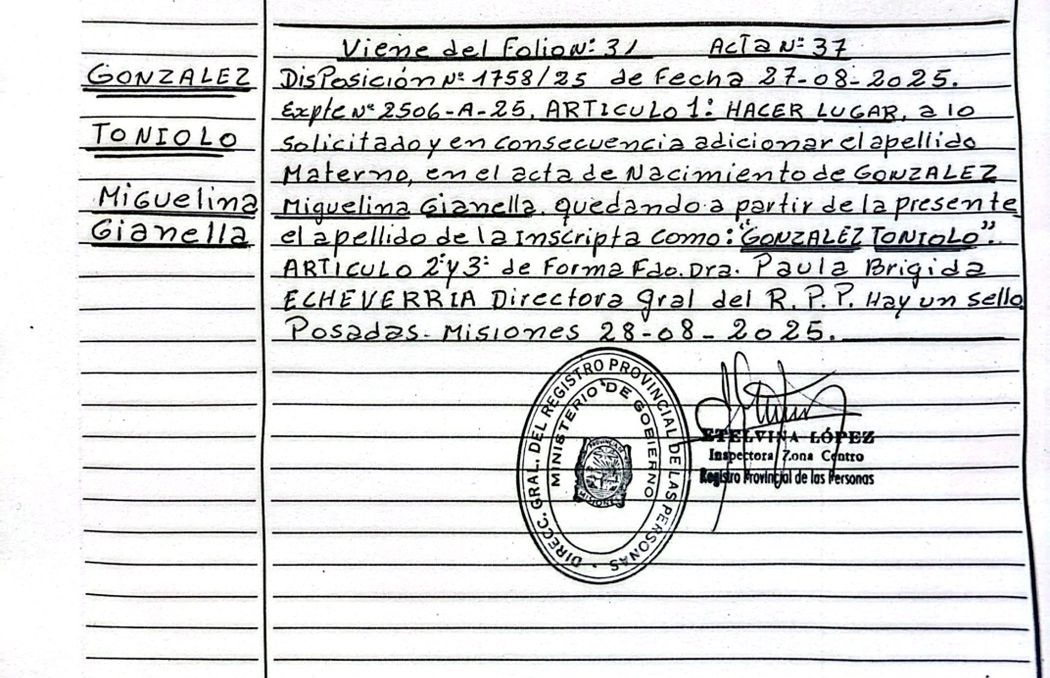 Viene del Folio Nº: 31 Acta Nº 37
GONZALEZ
TONIOLO
Miguelina
Gianella
Disposición Nº 1758/25 de Fecha 27-08-2025.
Expte Nº 2506-A-25. ARTICULO 1: HACER LUGAR, a lo
solicitado y en consecuencia adicionar el apellido
Materno, en el acta de Nacimiento de GONZALEZ
Miguelina Gianella. quedando a partir de la presente
el apellido de la Inscripta como: "GONZALEZ TONIOLO".
ARTICULO 2º y 3º de Forma Fdo. Dra. Paula Brigida
ECHEVERRIA Directora gral del R.P.P. Hay un sello
Posadas. Misiones 28-08-2025.
DIRECC. GRAL. DEL REGISTRO PROVINCIAL DE LAS PERSONAS
MINISTERIO DE GOBIERNO
MISIONES
ETELVINA LÓPEZ
Inspectora Zona Centro
Registro Provincial de las Personas